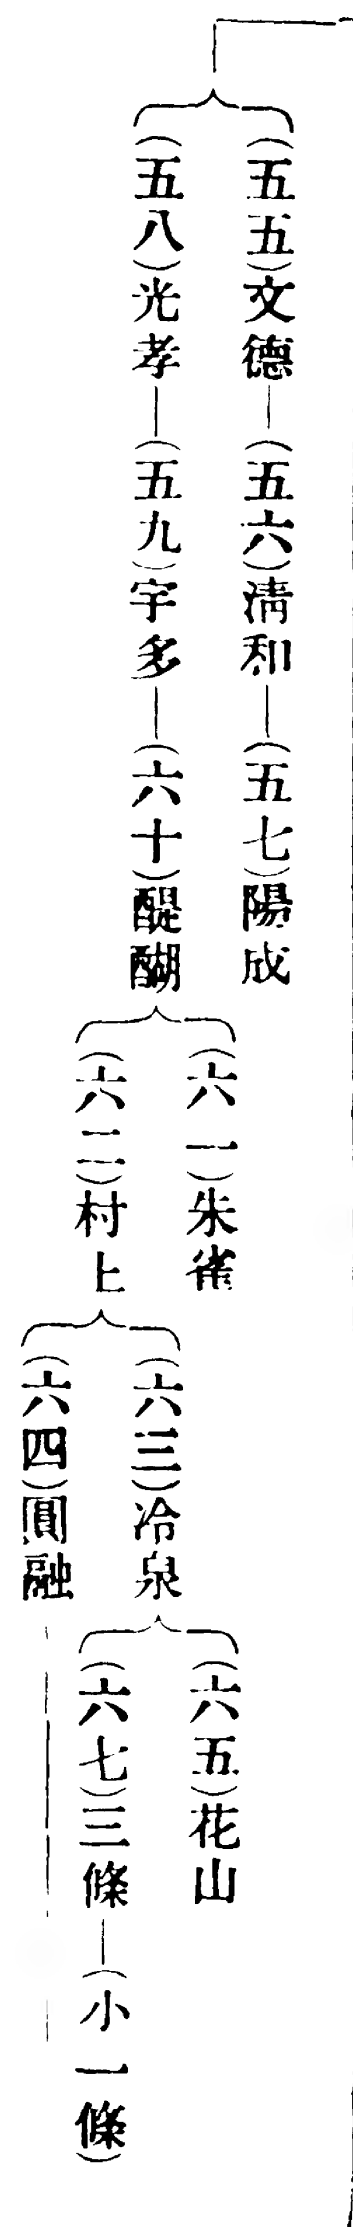 (五五)文德―(五六)淸和―(五七)陽成
(五八)光孝―(五九)宇多―(六十)醍醐
(六一)朱雀
(六二)村上
(六三)冷泉
(六四)圓融
(六五)花山
(六七)三條―(小一條)